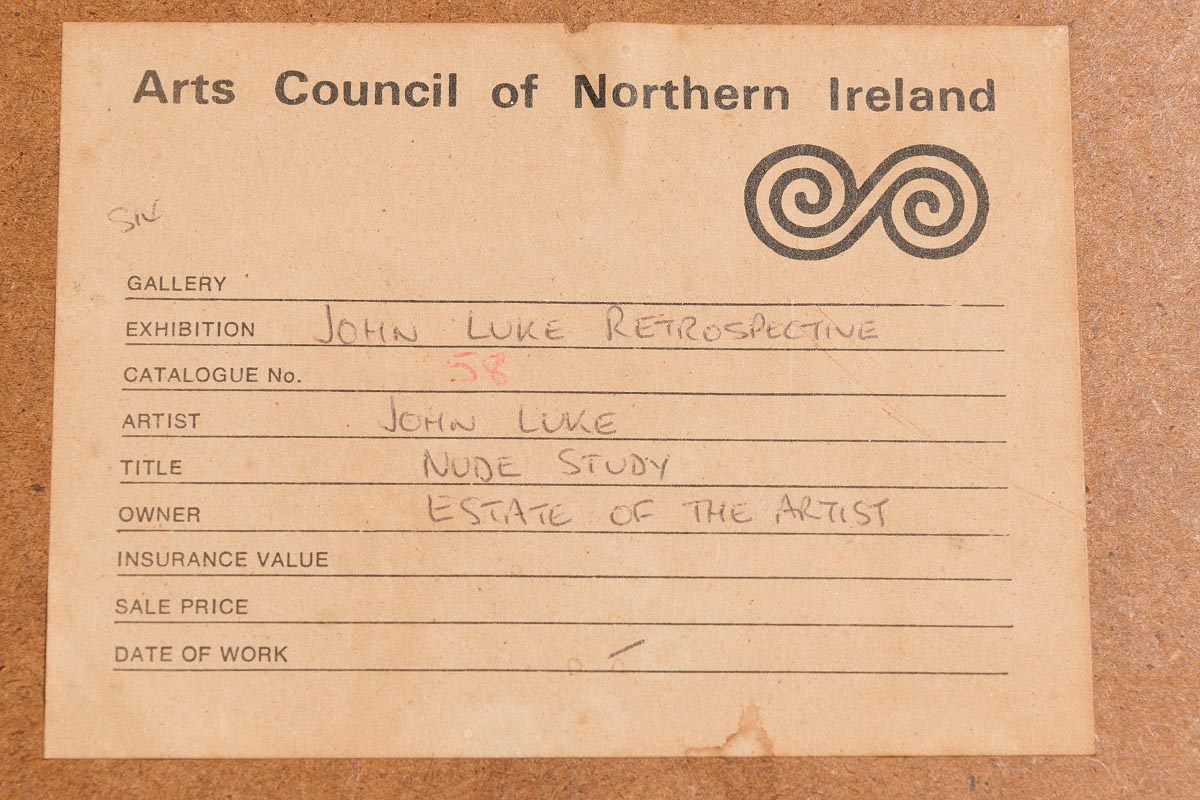 Arts Council of Northern Ireland
GALLERY
EXHIBITION JOHN LUKE RETROSPECTIVE
CATALOGUE No. 58
ARTIST JOHN LUKE
TITLE NUDE STUDY
OWNER ESTATE OF THE ARTIST
INSURANCE VALUE
SALE PRICE
DATE OF WORK /